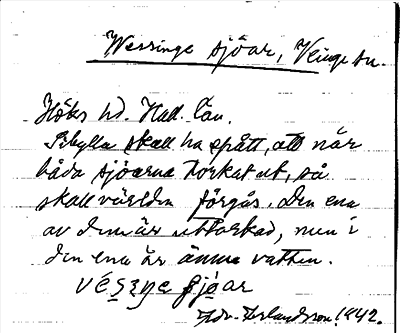 Wessinge sjöar, Veinge sn.
Höks hd. Hall. län.
Sibylla skall ha spått, att när
båda sjöarna torkat ut, så
skall världen förgås. Den ena
av dem är uttorkad, men i
den ena är ännu vatten.
vésenge sjöar
Erlandsson 1942.